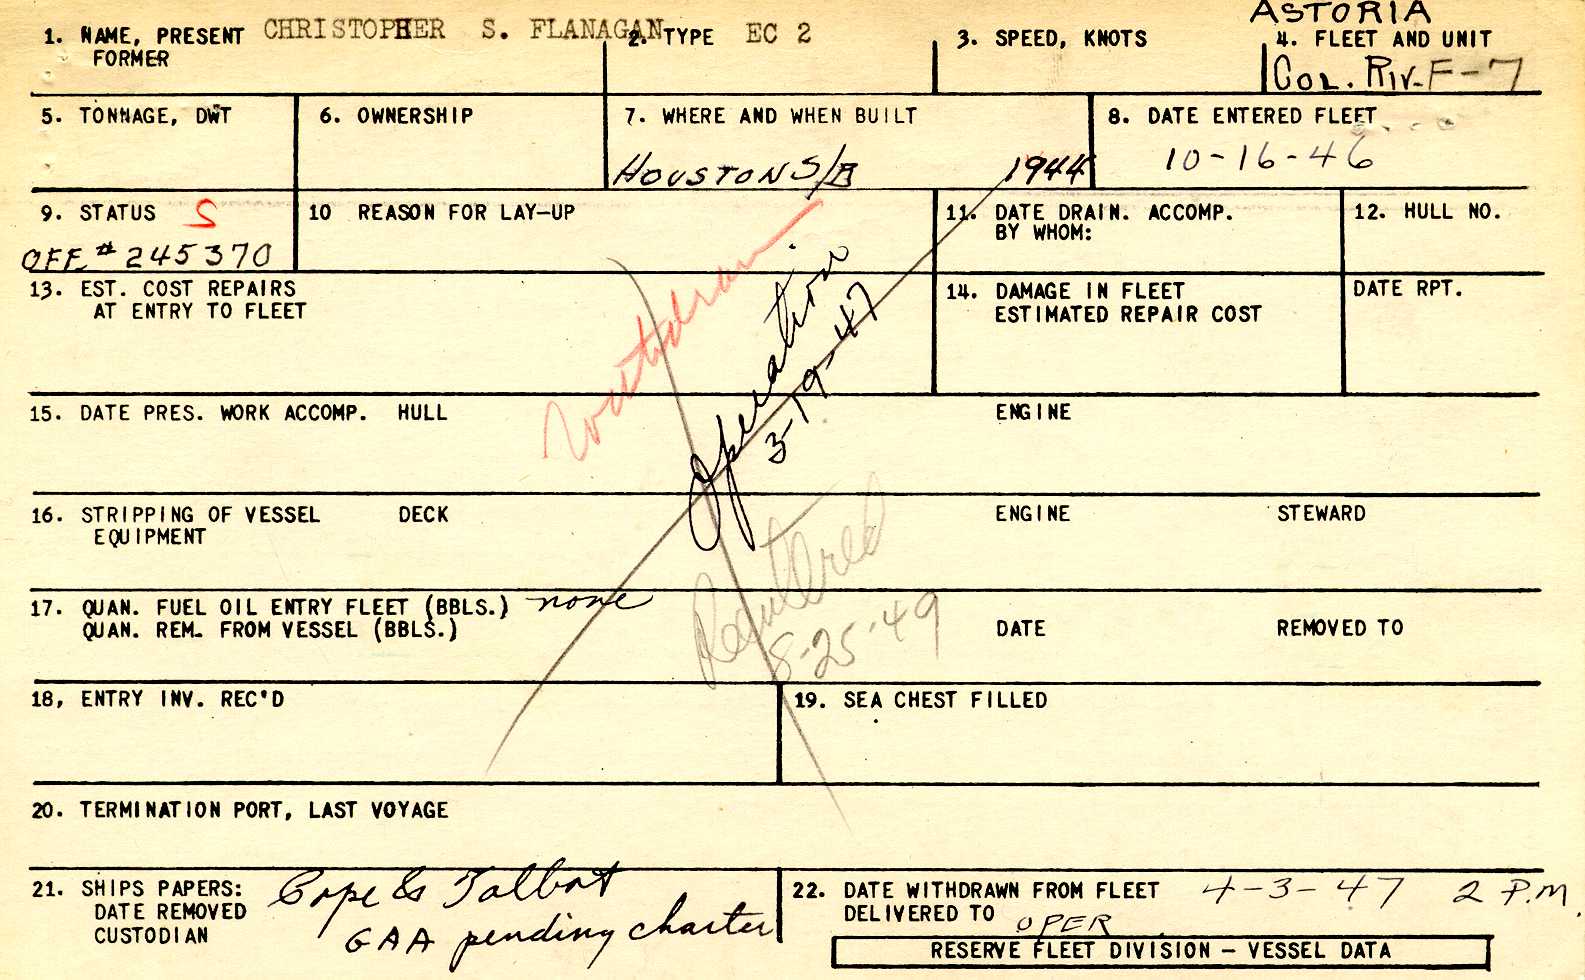 ASTORIA
1. NAME, PRESENT CHRISTOPHER S. FLANAGAN 2. TYPE EC 2 3. SPEED, KNOTS 4. FLEET AND UNIT
FORMER COL. RIV. F-7
5. TONNAGE, DWT 6. OWNERSHIP 7. WHERE AND WHEN BUILT 8. DATE ENTERED FLEET
HOUSTON S/B 1944 10-16-46
9. STATUS S 10 REASON FOR LAY-UP 11. DATE DRAIN. ACCOMP. 12. HULL NO.
BY WHOM:
OFF. # 245370
13. EST. COST REPAIRS 14. DAMAGE IN FLEET DATE RPT.
AT ENTRY TO FLEET ESTIMATED REPAIR COST
Withdrawn
Operation
3-19-47
15. DATE PRES. WORK ACCOMP. HULL ENGINE
16. STRIPPING OF VESSEL DECK ENGINE STEWARD
EQUIPMENT
Reentered
8-25-49
17. QUAN. FUEL OIL ENTRY FLEET (BBLS.) none
QUAN. REM. FROM VESSEL (BBLS.) DATE REMOVED TO
18, ENTRY INV. REC'D 19. SEA CHEST FILLED
20. TERMINATION PORT, LAST VOYAGE
21. SHIPS PAPERS: Pope & Talbot 22. DATE WITHDRAWN FROM FLEET 4-3-47 2 P.M.
DATE REMOVED GAA pending charter DELIVERED TO OPER
CUSTODIAN
RESERVE FLEET DIVISION – VESSEL DATA